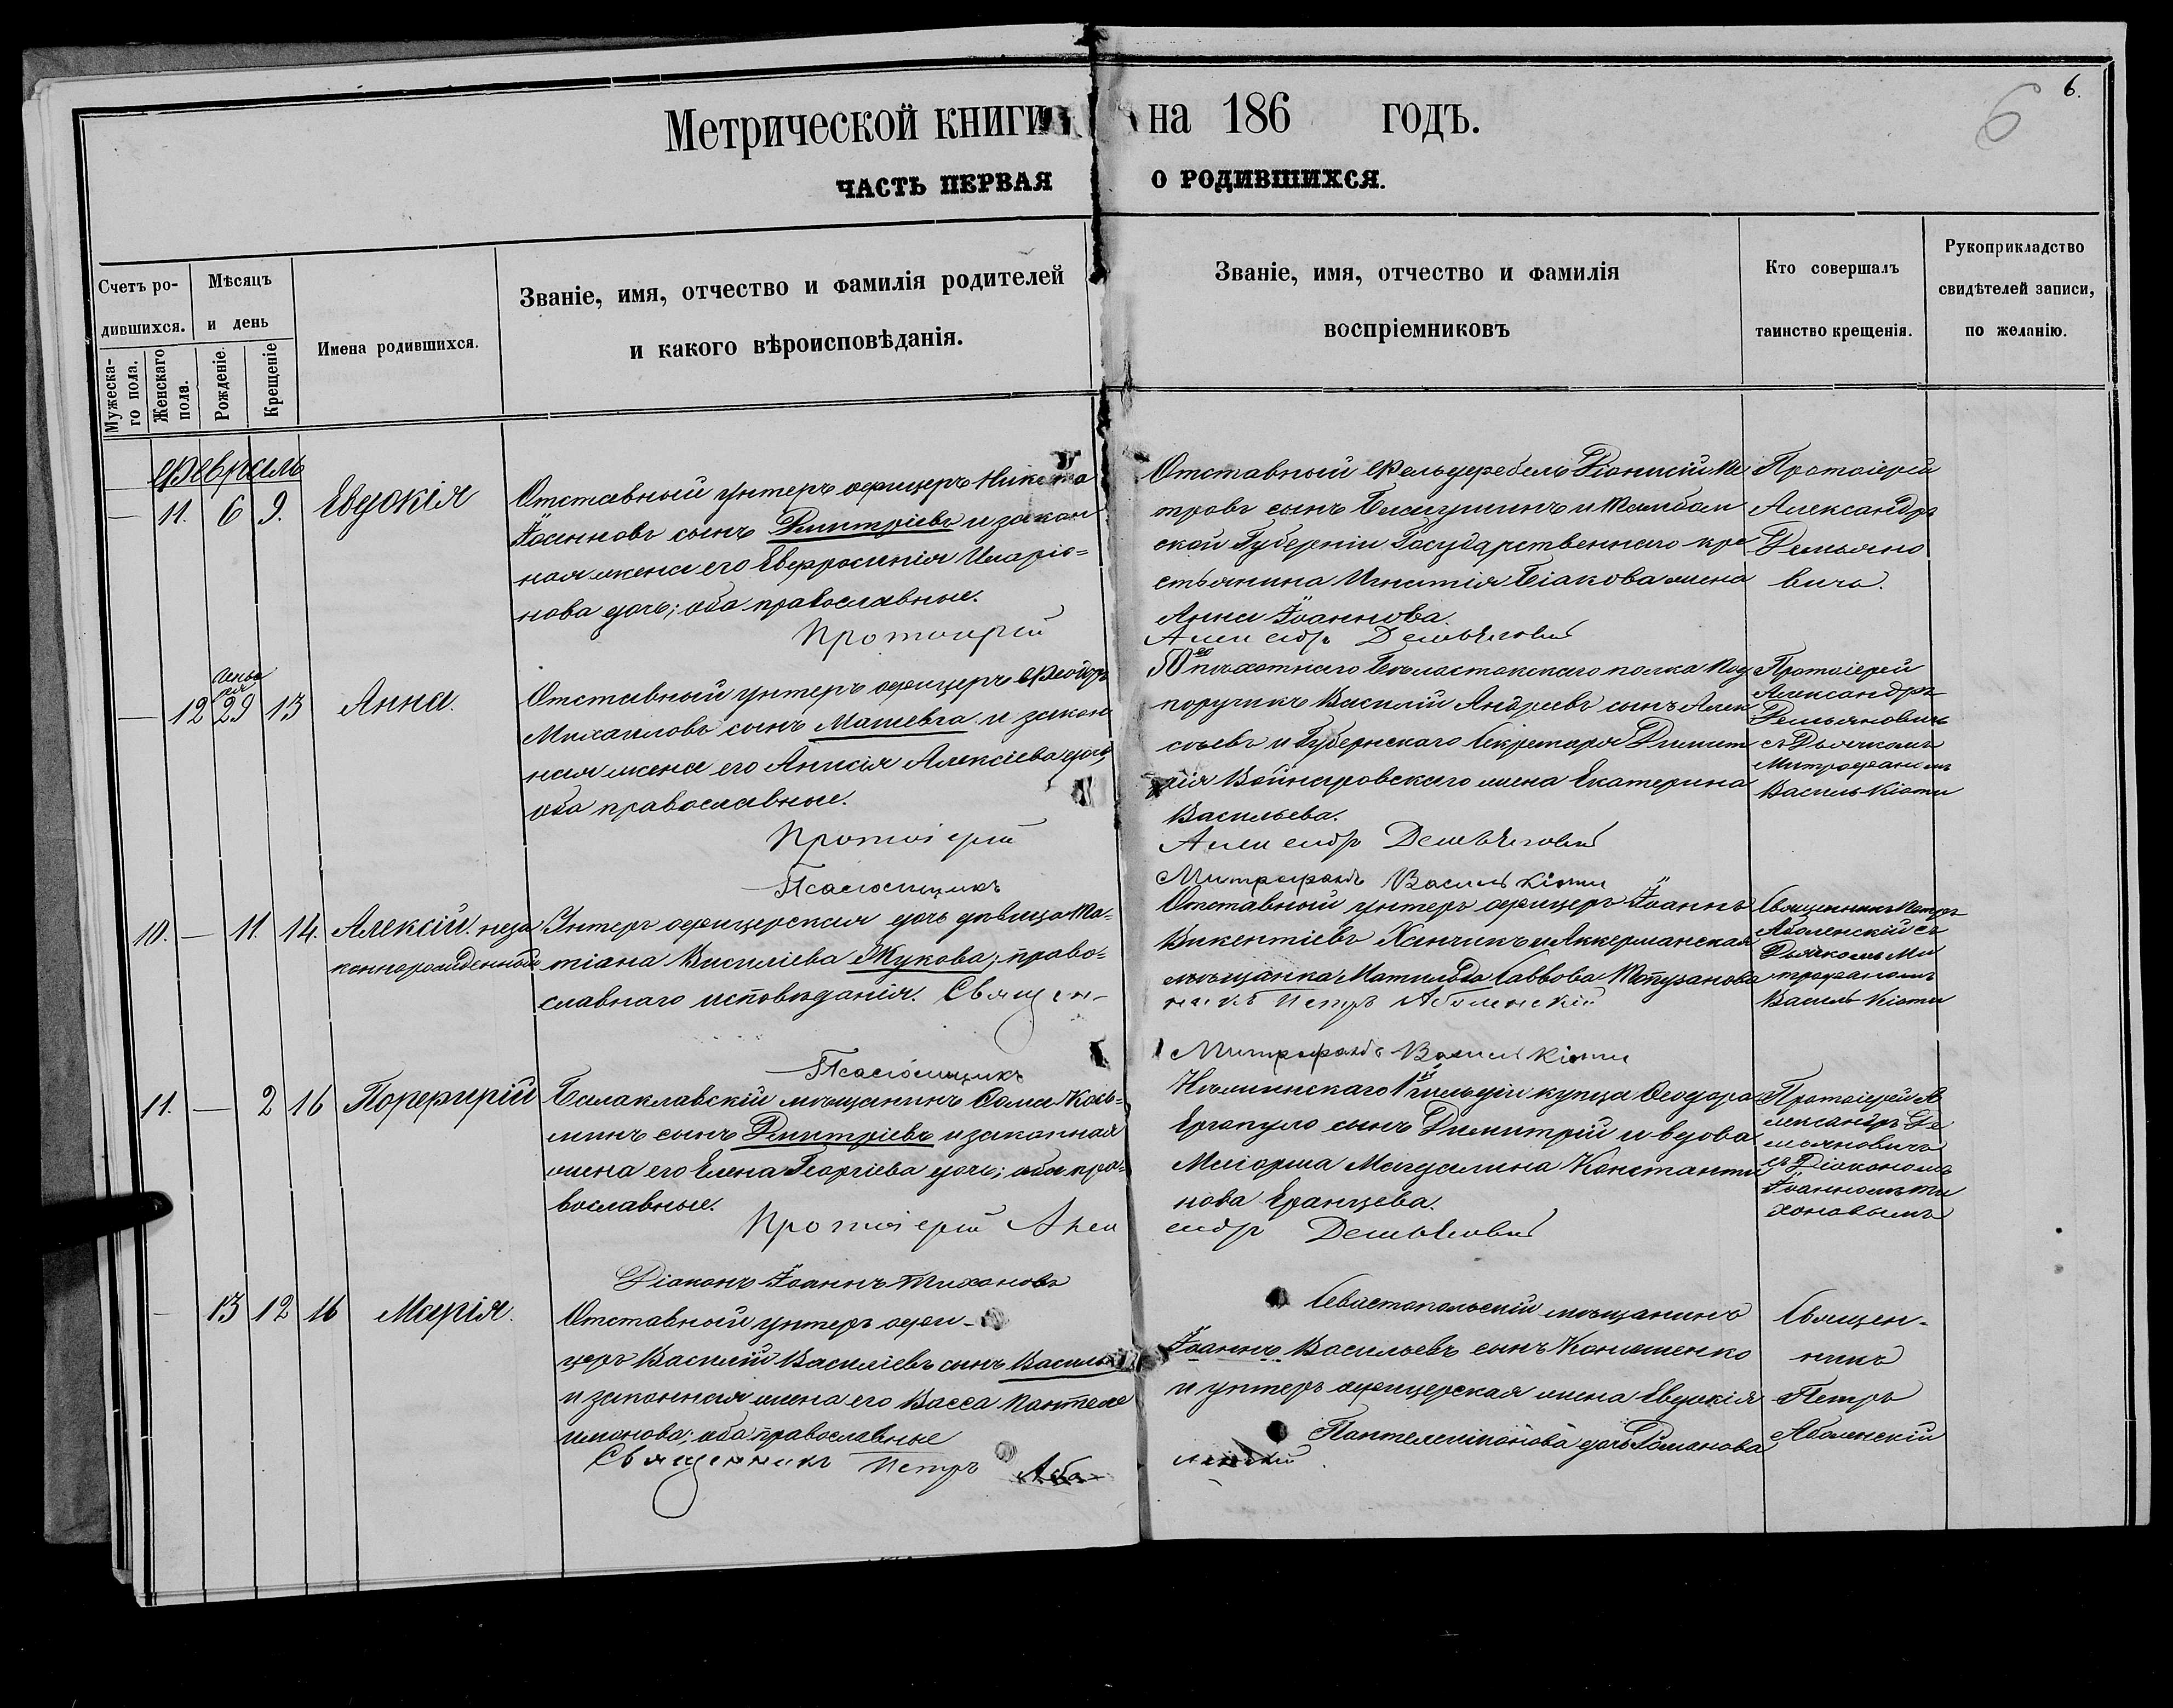 Метрической книги на 186 годъ.
6.
6
ЧАСТЬ ПЕРВАЯ О РОДИВШИХСЯ.
Счетъ ро-
дившихся.
Мужеска-
го пола.
Женскаго
пола.
Мѣсяцъ
и день
Рожденіе.
Крещеніе
Имена родившихся.
Званіе, имя, отчество и фамилія родителей
и какого вѣроисповѣданія.
Званіе, имя, отчество и фамилія
воспріемниковъ
Кто совершалъ
таинство крещенія.
Рукоприкладство
свидѣтелей записи,
по желанію.
Февраль
— 11. 6 9. Евдокія
Отставный унтеръ офицеръ Никита
Іоанновъ сынъ Дмитріевъ и закон
ная жена его Евфросинія Иларіо=
нова дочь; оба православные.
Протоиерей
Отставный Фельдфебель Діонисій Пе
тровъ сынъ и Тамбов
ской Губерніи Государственнаго кре
стьянина Игнатія Біакова жена
Анна Іоаннова.
Александръ Демьяновичъ
Протоіерей
Александръ
Демьяно
вичъ.
— 12 Генва
ря
29 13 Анна.
Отставный унтеръ офицеръ Феодоръ
Михаиловъ сынъ Машевга и закон
ная жена его Анисія Алексіева дочь;
оба православные.
Протоіерей
50го пѣхотнаго Бѣлостокскаго полка Под
поручикъ Василій Андреевъ сынъ Алек
сѣевъ и Губернскаго Секретаря Димит
рія Войнаровскаго жена Екатерина
Васильева.
Александръ Демьяновичъ
Протоіерей
Александръ
Демьяновичъ
съ Дьячкомъ
Митрофаномъ
Василь-Кіоти
Псаломщикъ Митрофанъ Василькіоти
10. — 11. 14. Алексій. неза
коннорожденный
Унтеръ офицерская дочь дѣвица Та=
тіана Василіева Жукова; право=
славнаго исповѣданія. Священ-
Отставный унтеръ офицеръ Іоаннъ
Викентіевъ Ханчикъ и Аккерманская
мѣщанка Матильда Саввова
никъ Петръ Аболенскій
Священникъ Петръ
Аболенскій съ
Дьячкомъ Ми
трофаномъ
Василь-Кіоти
Псаломщикъ Митрофанъ Василькіоти
11. — 2 16 Порфирій
Балаклавскій мѣщанинъ Ѳома Кось=
минъ сынъ Дмитріевъ и законная
жена его Елена Георгіева дочь; оба пра=
вославные.
Протоіерей Алек
1й гильдіи купца Ѳеодора
сынъ Димитрій и вдова
Маіорша Магдалина Константи
нова Еранцева.
сандръ Демьяновичъ
Протоіерей А
лександръ Де
мьяновичъ
съ Діакономъ
Іоанномъ Ти
хоновымъ
Діаконъ Іоаннъ Тихоновъ
— 13 12 16 Марія.
Отставной унтеръ офи-
церъ Василій Василіевъ сынъ
и законная жена его Васса Пантеле
имонова; оба православные
Священникъ Петръ Або
Севастопольскій мѣщанинъ
Іоаннъ Васильевъ сынъ Кономенко
и унтеръ офицерская жена Евдокія
Пантелеимонова дочь Романова
ленскій
Священ-
никъ
Петръ
Аболенскій